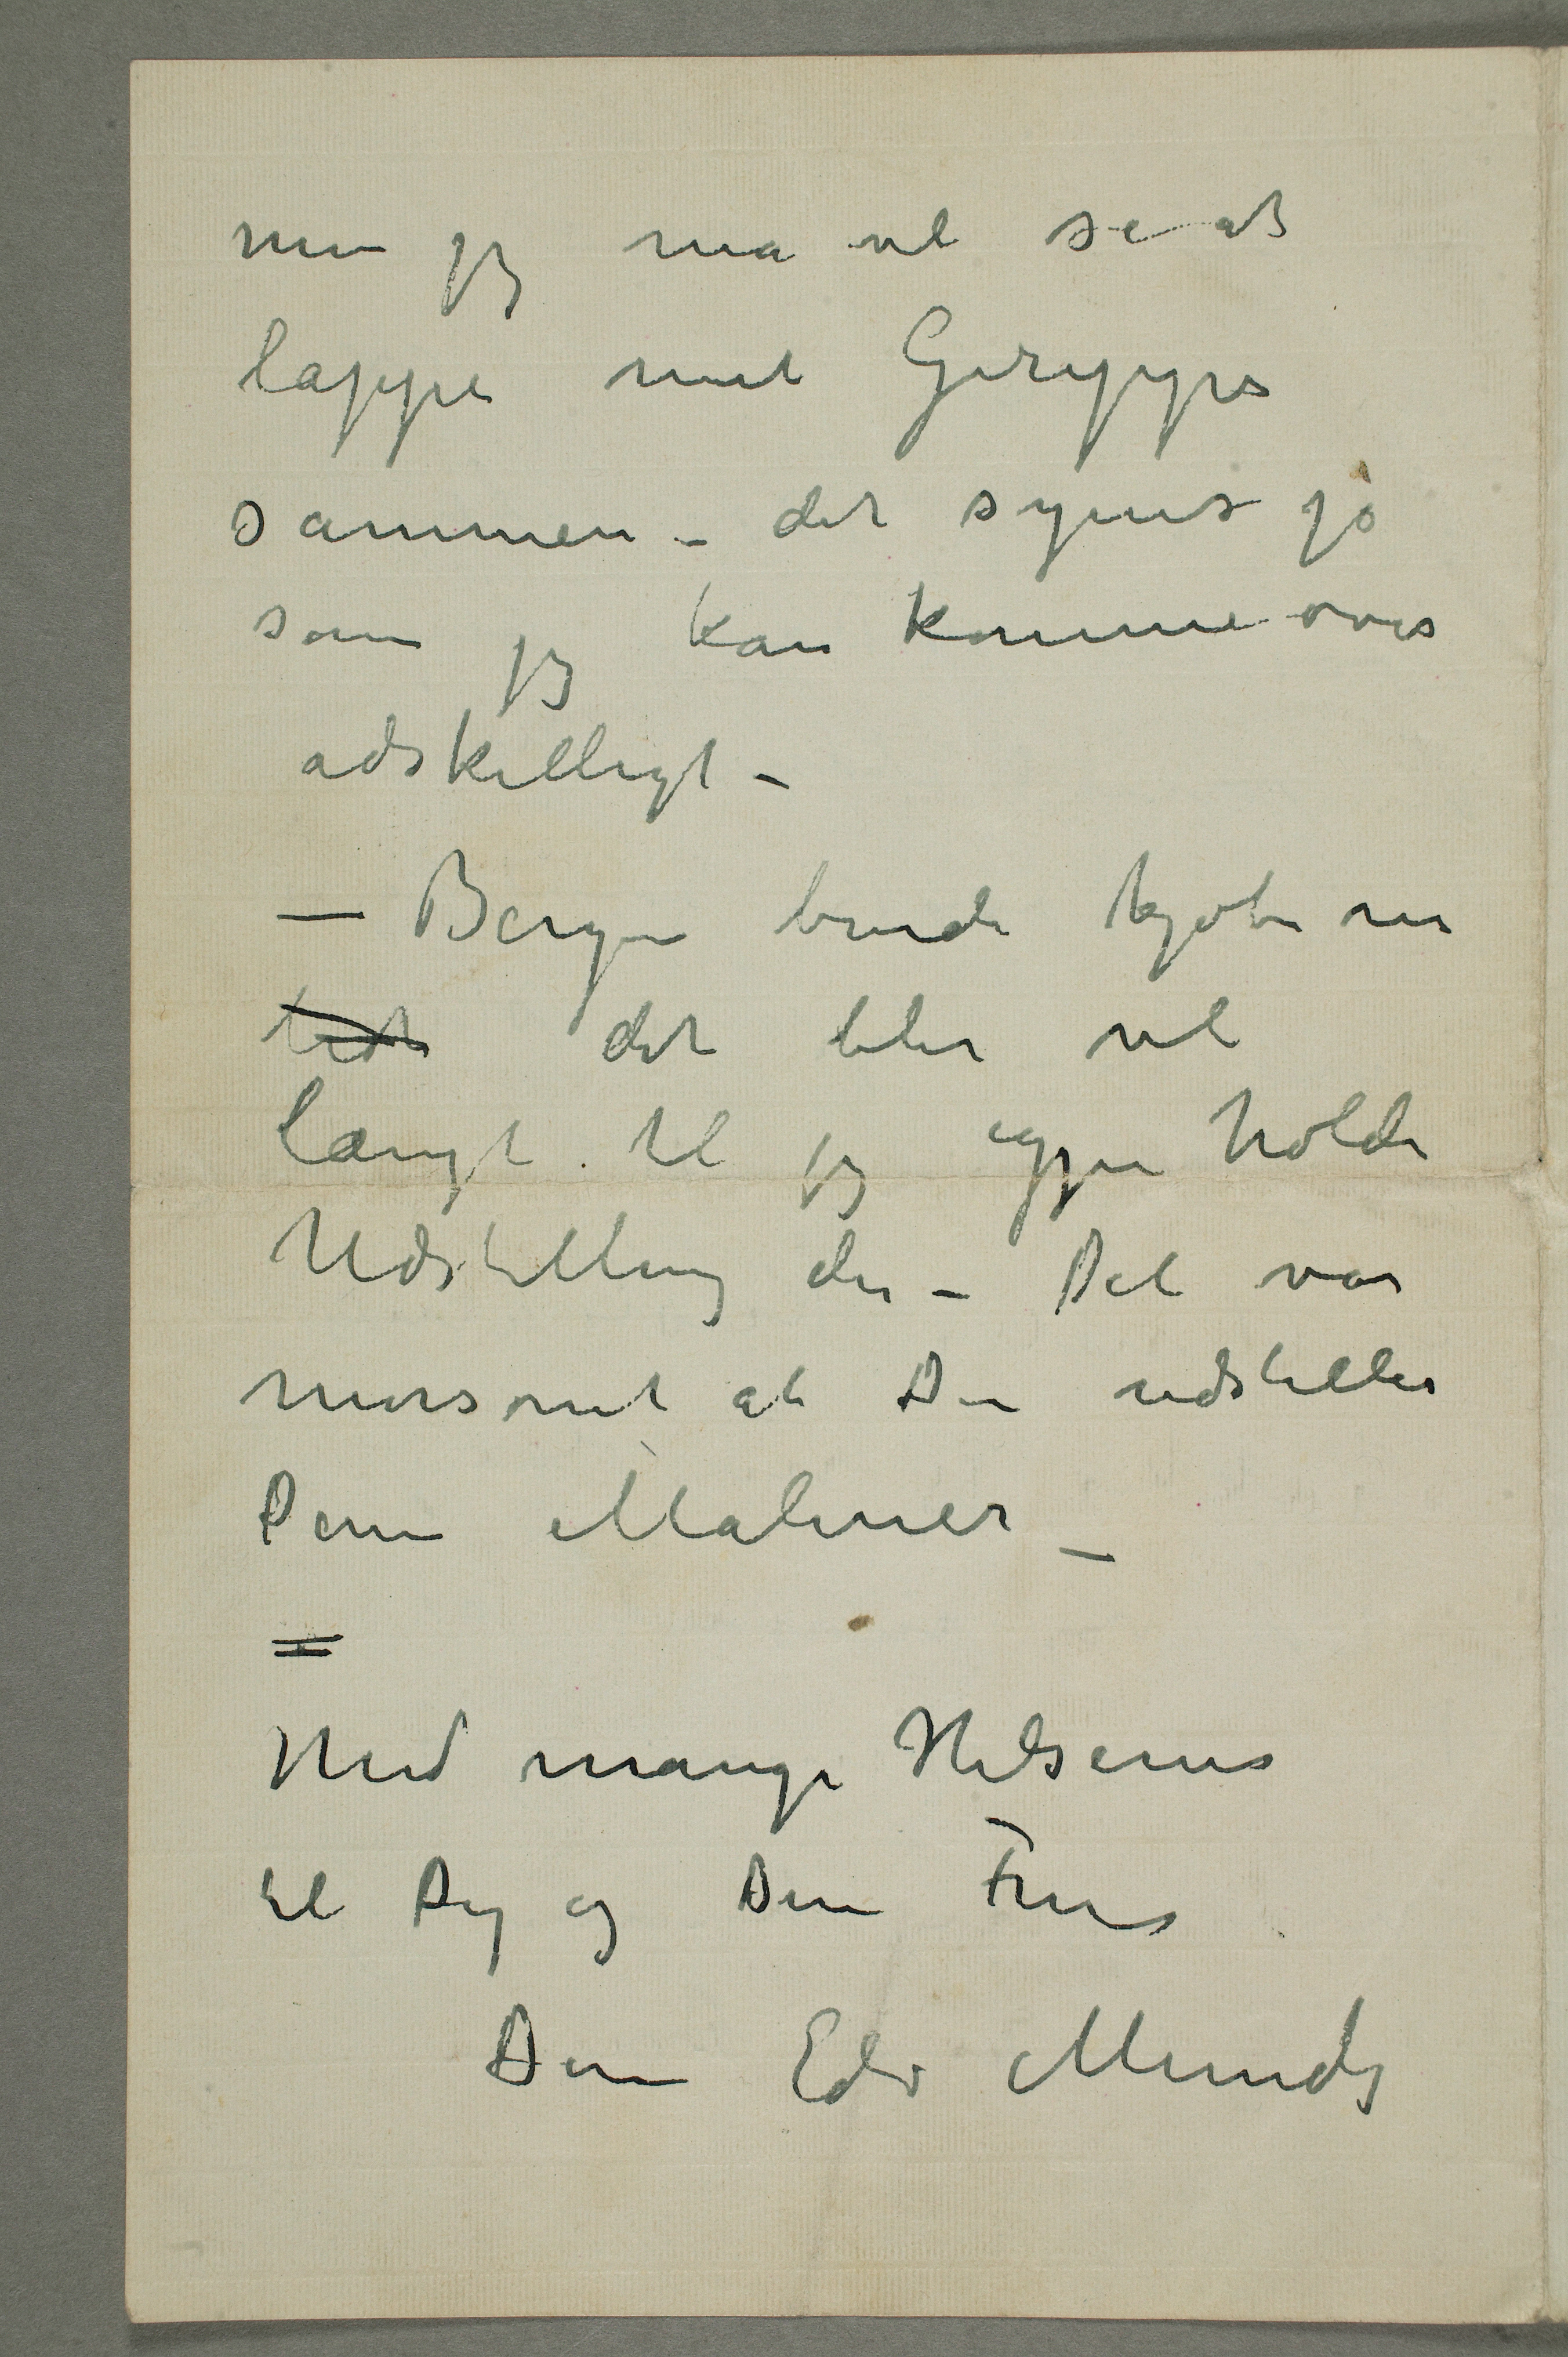 men jeg må vel se at
lappe mit Gerippe
sammen – det synes jo
som jeg kan komme over
adskilligt –
– Bergen burde kjøbe nu
det blir vel
længe til jeg igjen holder
Udstilling der – Det var
morsomt at Du udstiller
Dine Malerier –
=
Med mange Hilsener
til Dig og Din Frue
Din Edv Munch